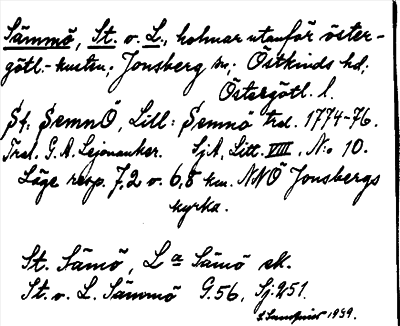 Sämmö, St. o. L., holmar utanför öster-
götl.-kusten; Jonsberg sn; Östkinds hd;
Östergötl. l.
St. SemnÖ, Lill: Semnö Trd. 1774-76.
Trsl. G. A. Lejonancker. Sj A, Litt. VIII, N:o 10.
Läge resp. 7,2 o. 6,8 km. NNÖ Jonsbergs
kyrka.
St. Sämö, L:a Sämö ek.
St. o. L. Sämmö G. 56, Sj. 251.
1939.